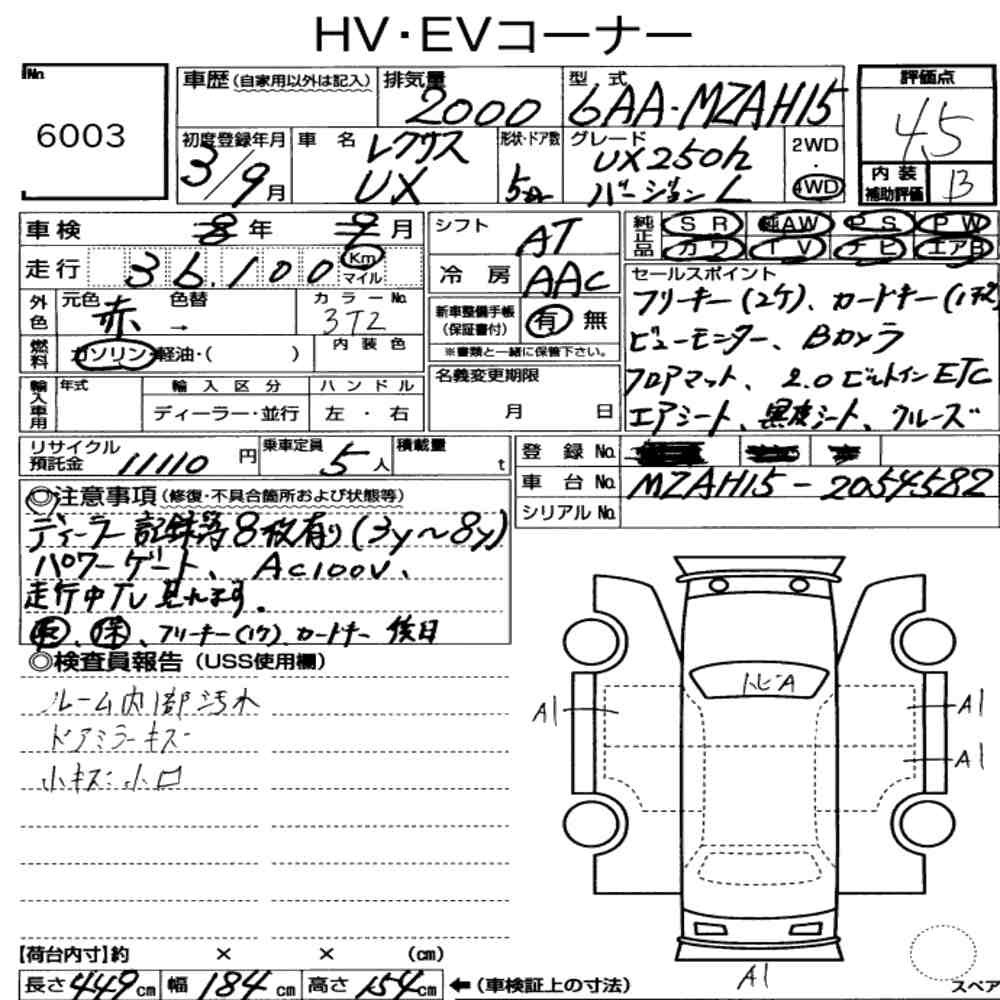 HV・EVコーナー
No.
6003
車歴 (自家用以外は記入)
排気量
2000
型式
6AA-MZAH15
評価点
4.5
初度登録年月
3/9月
車名
レクサス
UX
形状・ドア数
5
グレード
UX250h
バージョンL
2WD
・
4WD
内装
補助評価
B
車検
8年 9月
シフト
AT
純正品
SR 純AW PS PW
カワ TV ナビ エアB
走行
36,100 Km
マイル
冷房
AAC
セールスポイント
フリーキー(2ケ)、カードキー(1ケ)
ビューモニター、Bカメラ
フロアマット、2.0ビルトインETC
エアシート、黒皮シート、クルーズ
外色
元色
赤
色替
→
カラーNo.
3T2
新車整備手帳
(保証書付)
有 無
※書類と一緒に保管下さい。
燃料
ガソリン・軽油・( )
内装色
輸入車用
年式
輸入区分
ディーラー・並行
ハンドル
左・右
名義変更期限
月 日
リサイクル
預託金
11110円
乗車定員
5人
積載量
t
登録No.
車台No.
MZAH15-2054582
シリアルNo.
◎注意事項(修復・不具合箇所および状態等)
ディーラー記録簿8枚有り(3y~8y)
パワーゲート、AC100V、
走行中TV見れます。
取、保、フリーキー(1ケ)、カードキー後日
◎検査員報告 (USS使用欄)
ルーム内部汚れ
ドアミラーキズ
小キズ小凹
トビA
A1
A1
A1
A1
【荷台内寸】約 × × (cm)
長さ449cm 幅184cm 高さ154cm ←(車検証上の寸法)
スペア